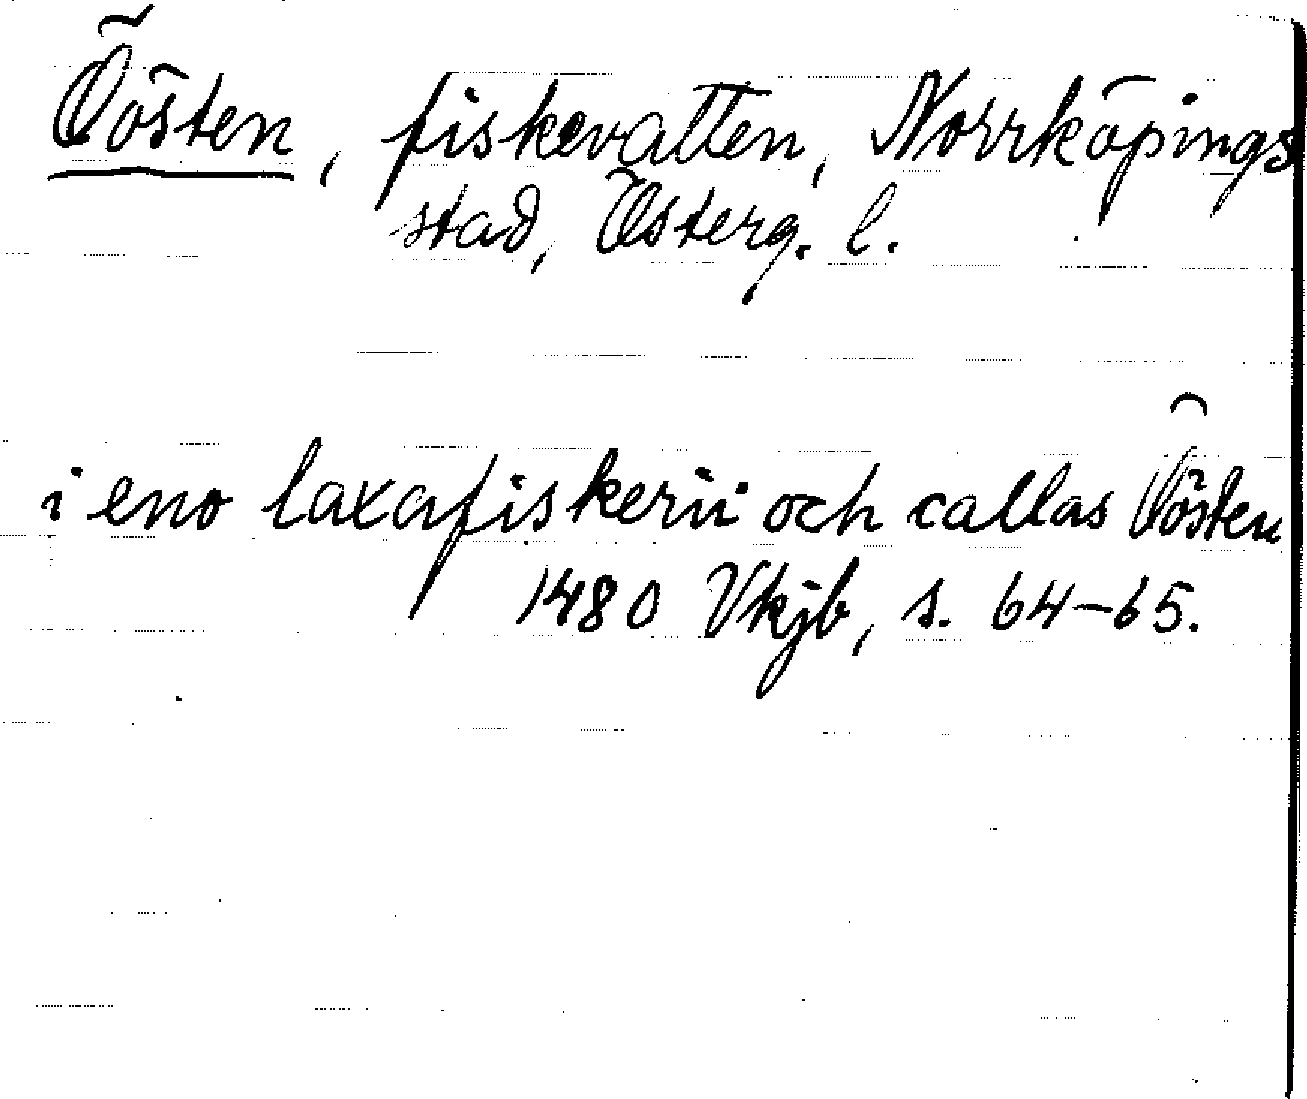 Öösten, fiskevatten, Norrköpings
stad, Österg. l.
i eno laxafiskerii och callas Öösten
1480 Vkjb, s. 64-65.